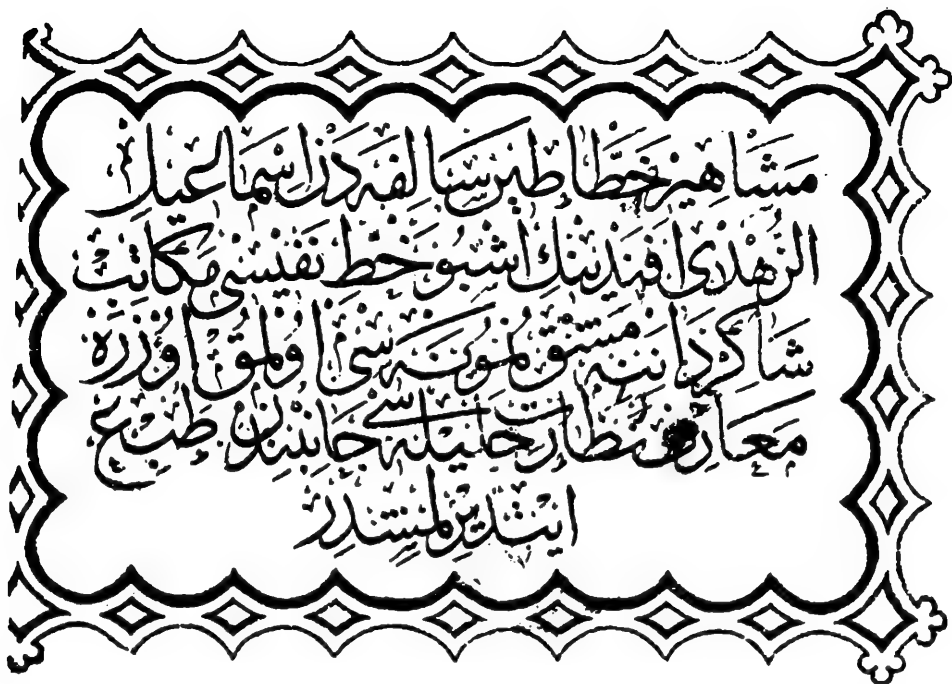 مشاهیر خطاطین سالفه‌دن اسماعیل
الزهدی افندینك اشبو خط نفیسی مكاتب
شاكردانینه مشق نمونه‌سی اولمق اوزره
معارف نظارت جلیله‌سی جانبندن طبع
ایتدیرلمشدر